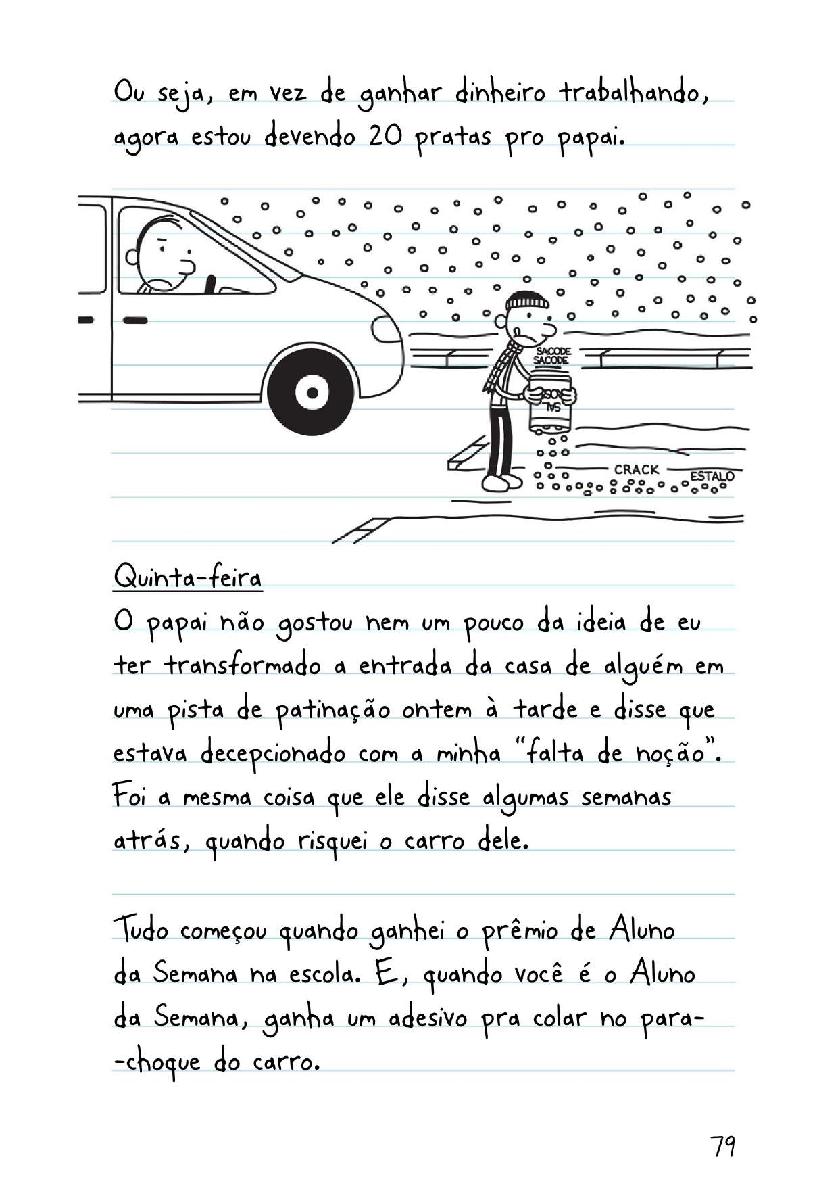 Ou seja, em vez de ganhar dinheiro trabalhando,
agora estou devendo 20 pratas pro papai.
SACODE
SACODE
SAL
GROSSO
CRACK
ESTALO
Quinta-feira
O papai não gostou nem um pouco da ideia de eu
ter transformado a entrada da casa de alguém em
uma pista de patinação ontem à tarde e disse que
estava decepcionado com a minha “falta de noção”.
Foi a mesma coisa que ele disse algumas semanas
atrás, quando risquei o carro dele.
Tudo começou quando ganhei o prêmio de Aluno
da Semana na escola. E, quando você é o Aluno
da Semana, ganha um adesivo pra colar no para-
-choque do carro.
79